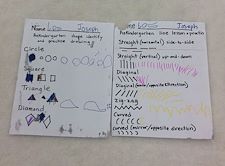 Name Los Joseph
Kindergarten shape identify
and practice drawing
Circle
Square
Triangle
Diamond
Name Los Joseph
Kindergarten line lesson + practice
Straight (horizontal) side-to-side
Straight (vertical) up-and-down
Diaginal
Diaginal (mirror/opposite direction)
Zig-zag
Curved
Curved (mirror/opposite direction)